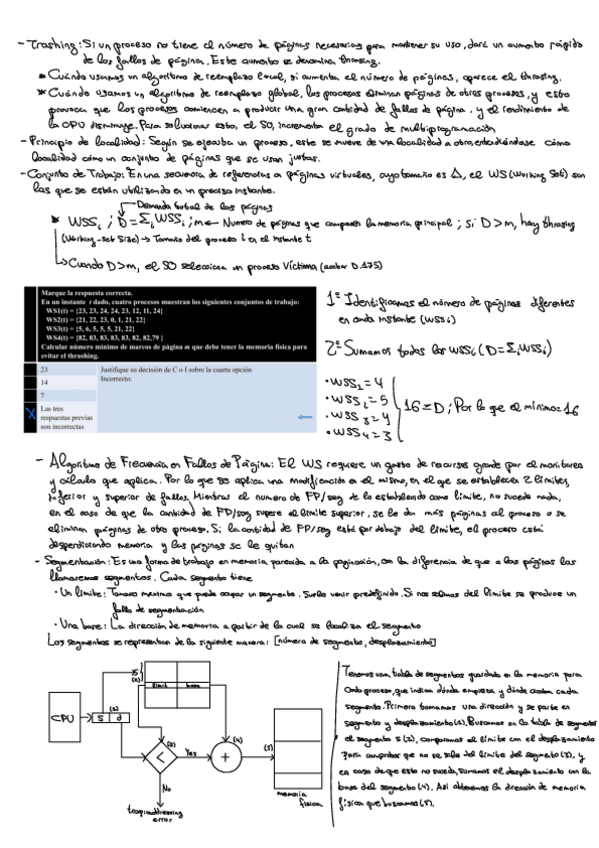 - Trashing: Si un proceso no tiene el número de páginas necesarias para mantener su uso, dará un aumento rápido
de los fallos de página. Este aumento se denomina thrasing.
* Cuándo usamos un algoritmo de reemplazo local, si aumenta el número de páginas, aparece el thrasing.
* Cuándo usamos un algoritmo de reemplazo global, los procesos eliminan páginas de otros procesos, y esto
provoca que los procesos comiencen a producir una gran cantidad de fallos de página. y el rendimiento de
la CPU disminuye. Para solucionar esto, el SO, incrementa el grado de multiprogramación
- Principio de localidad: Según se ejecuta un proceso, este se mueve de una localidad a otra, entendiéndose cómo
localidad cómo un conjunto de páginas que se usan juntas.
- Conjunto de Trabajo: En una secuencia de referencias a páginas virtuales, cuyo tamaño es Δ, el WS (Working Set) son
las que se están utilizando en un preciso instante.
Demanda total de las páginas
* WSSi ; D = Σi WSSi ; m ← Numero de páginas que componen la memoria principal ; si D>m, hay thrasing
(Working-Set Size) → Tamaño del proceso i en el instante t
Cuando D>m, el SO selecciona un proceso Víctima
Marque la respuesta correcta.
En un instante t dado, cuatro procesos muestran los siguientes conjuntos de trabajo:
WS1(t) = {23, 23, 24, 24, 23, 12, 11, 24}
WS2(t) = {21, 22, 23, 0, 1, 21, 22}
WS3(t) = {5, 6, 5, 5, 5, 21, 22}
WS4(t) = {82, 83, 83, 83, 83, 82, 82,79 }
Calcular número mínimo de marcos de página m que debe tener la memoria física para
evitar el thrashing.
23
14
7
X Las tres
respuestas previas
son incorrectas
Justifique su decisión de C o I sobre la cuarta opción
Incorrecto:
1º Identificamos el número de páginas diferentes
en cada instante (WSSi)
2º Sumamos todas las WSSi (D = Σi WSSi)
• WSS1 = 4
• WSS2 = 5
• WSS3 = 4
• WSS4 = 3
16 = D ; Por lo que el mínimo = 16
- Algoritmo de Frecuencia en Fallos de Página: El WS requiere un gasto de recursos grande por el monitoreo
y cálculo que aplica. Por lo que se aplica una modificación en el mismo, en el que se establecen 2 límites,
inferior y superior de fallos. Mientras el numero de FP/seg de lo establecido como límite, no sucede nada,
en el caso de que la cantidad de FP/seg supere el límite superior, se le dan más páginas al proceso o se
eliminan páginas de otro proceso. Si la cantidad de FP/seg está por debajo del límite, el proceso está
desperdiciando memoria y las páginas se le quitan
- Segmentación: Es una forma de trabajo en memoria parecida a la paginación, con la diferencia de que a las páginas las
llamaremos segmentos. Cada segmento tiene
• Un límite: Tamaño máximo que puede ocupar un segmento. Suele venir predefinido. Si nos salimos del límite se produce un
fallo de segmentación
• Una base: La dirección de memoria a partir de la cual se localiza el segmento
Los segmentos se representan de la siguiente manera: [número de segmento, desplazamiento]
s
limit base
CPU
(1)
s d
(2)
(3)
<
Yes
(4)
+
(5)
No
trap: addressing
error
memoria
física
Tenemos una tabla de segmentos guardada en la memoria para
cada proceso, que indica dónde empieza y dónde acaba cada
segmento. Primero tomamos una dirección y se parte en
segmento y desplazamiento (1). Buscamos en la tabla de segmentos
el segmento s (2), comparamos el límite con el desplazamiento
para comprobar que no se sale del límite del segmento (3), y
en caso de que esto no suceda, sumamos el desplazamiento con la
base del segmento (4). Así obtenemos la dirección de memoria
física que buscamos (5).